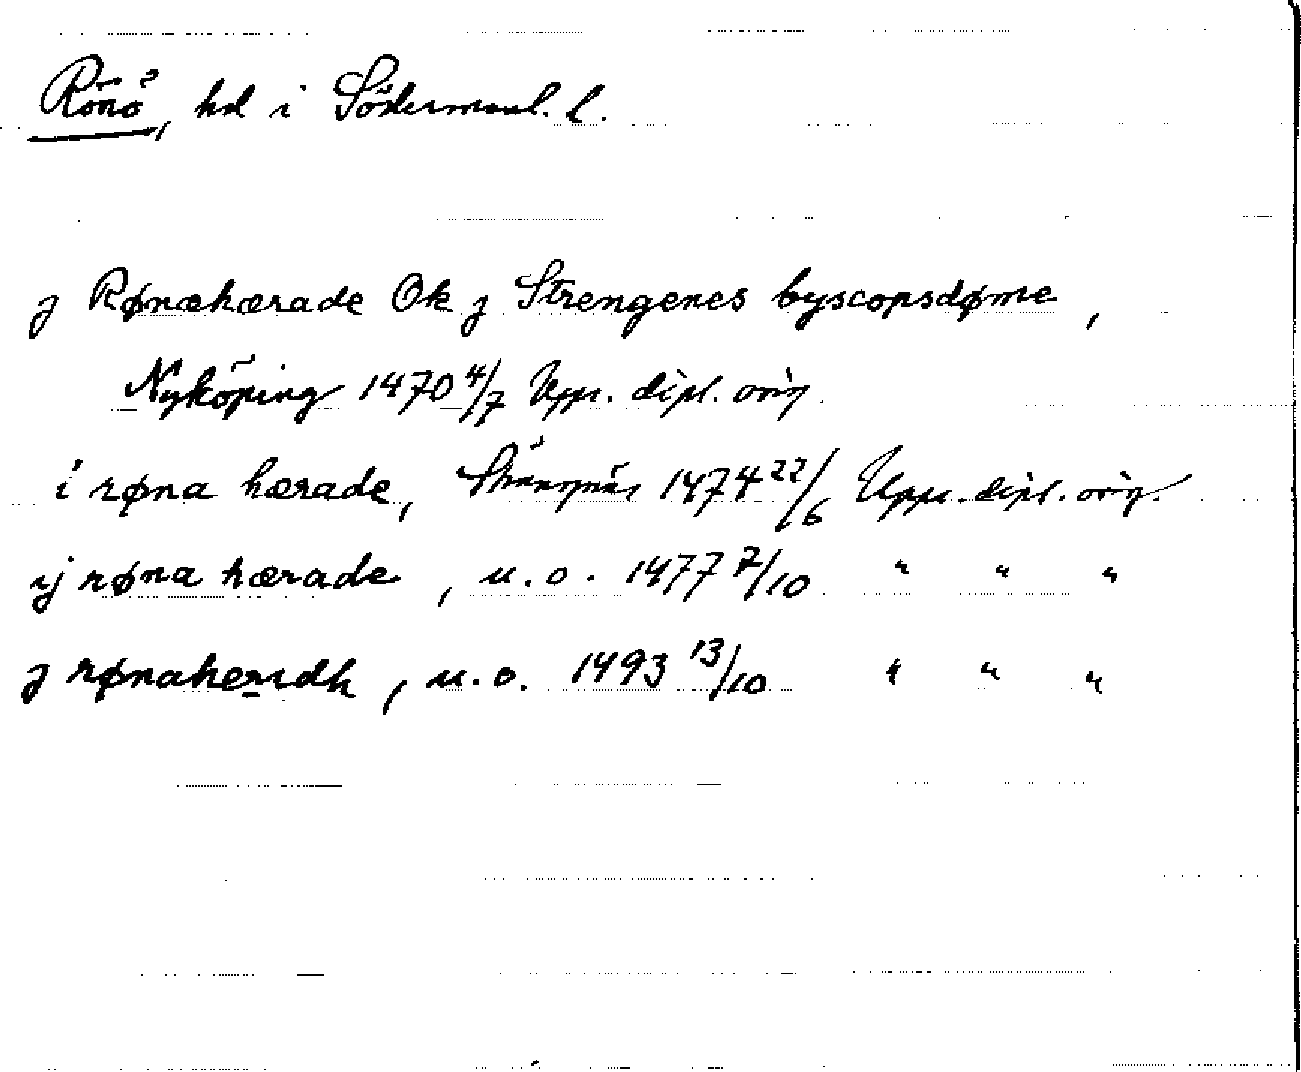 Rönö, hd i Södermanl. l.
j Rønæhærade Ok j Strengenes byscopsdøme,
Nyköping 1470 4/7 Upps. dipl. orig.
i røna hærade, Strängnäs 1474 22/6 Upps. dipl. orig.
ij røna hærade, u.o. 1477 7/10 " " "
j rønaheridh, u.o. 1493 13/10 " " "